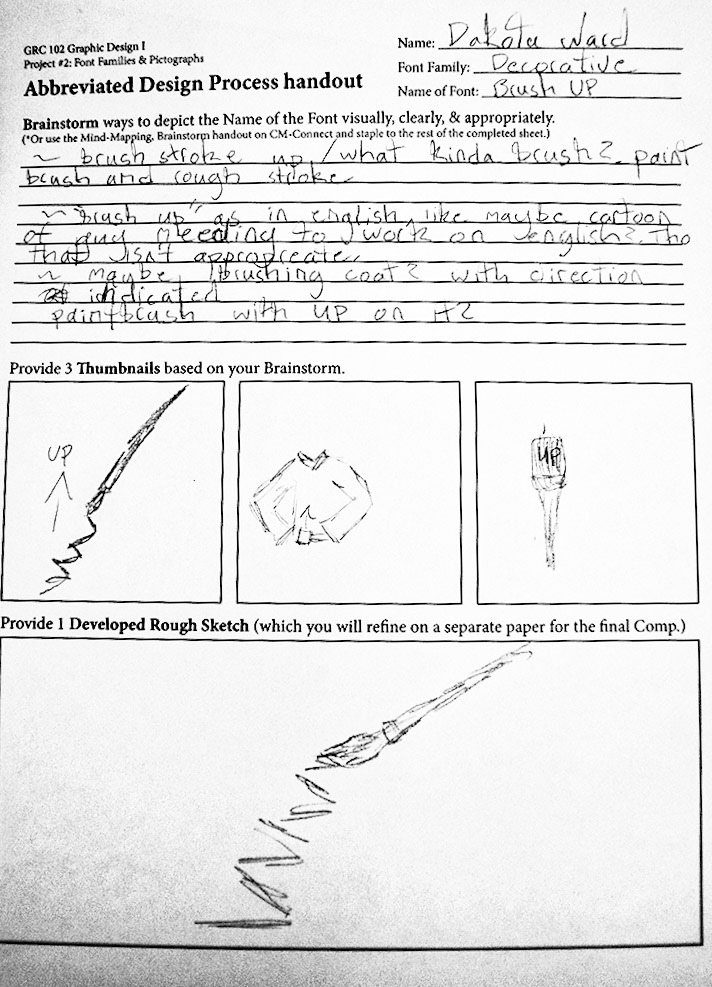 GRC 102 Graphic Design I
Project #2: Font Families & Pictographs
Abbreviated Design Process handout
Name: Dakota Ward
Font Family: Decorative
Name of Font: Brush UP
Brainstorm ways to depict the Name of the Font visually, clearly, & appropriately.
(*Or use the Mind-Mapping, Brainstorm handout on CM-Connect and staple to the rest of the completed sheet.)
~ brush stroke up / what kinda brush? paint
brush and rough stroke
~ "brush up" as in english, like maybe cartoon
of guy needing to work on english? Tho
that isnt appropreate
~ maybe brushing coat? with direction
indicated
paintbrush with UP on it?
Provide 3 Thumbnails based on your Brainstorm.
UP
UP
Provide 1 Developed Rough Sketch (which you will refine on a separate paper for the final Comp.)